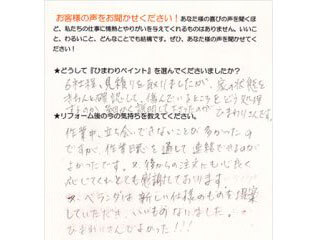 お客様の声をお聞かせください！あなた様の喜びの声を聞くほ
ど、私たちの仕事に情熱とやりがいを与えてくれるものはありません。いいこ
と、わるいこと、どんなことでも結構です。ぜひ、あなた様の声をお聞かせくだ
さい！
★どうして『ひまわりペイント』を選んでくださいましたか？
6社程、見積りを取りましたが、家の状態を
きちんと確認して、傷んでいるところをどう処理
するのか、細かく説明して下さったのが
ひまわりさんです。
★リフォーム後の今の気持ちを教えてください。
作業中、立ち会いできないことが多かったの
ですが、作業日誌を通して連絡できるのが
よかったです。又、後からの注文にも心良く
応じてくれとても感謝しております。
ベランダは新しい仕様のものを提案
していただき、いいものになりました。
ひまわりさんでよかった!!!